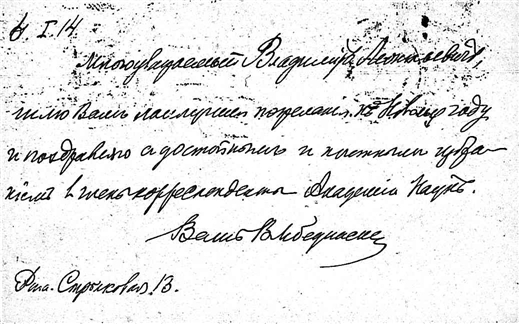 6. I. 14.
Многоуважаемый Владимиръ Леонтьевичъ,
шлю Вамъ наилучшія пожеланія къ Новому году
и поздравляю съ достойнымъ и почетнымъ избра-
ніемъ въ члены корреспонденты Академіи Наукъ.
Вашъ
Стрыковая 13.